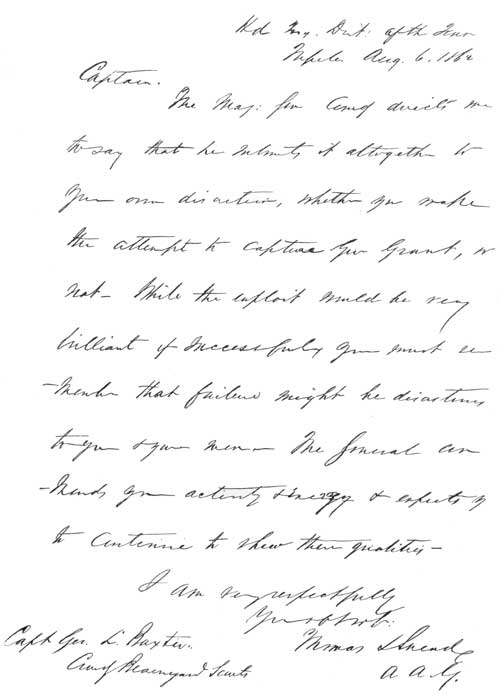 Hd Qrs. Dist: of the Tenn
Tupelo Aug. 6. 1862
Captain.
The Maj: Gen Comdg directs me
to say that he submits it altogether to
your own discretion, whether you make
the attempt to capture Gen Grant, or
not – While the exploit would be very
brilliant if successful, you must re
-member that failure might be disastrous
to you & your men – The General com
-mends your activity & energy & expects you
to continue to show these qualities –
I am very respectfully
Yr obt Svt.
Thomas L Snead
A A G.
Capt Geo. L. Baxter.
Comdg Beauregard Scouts